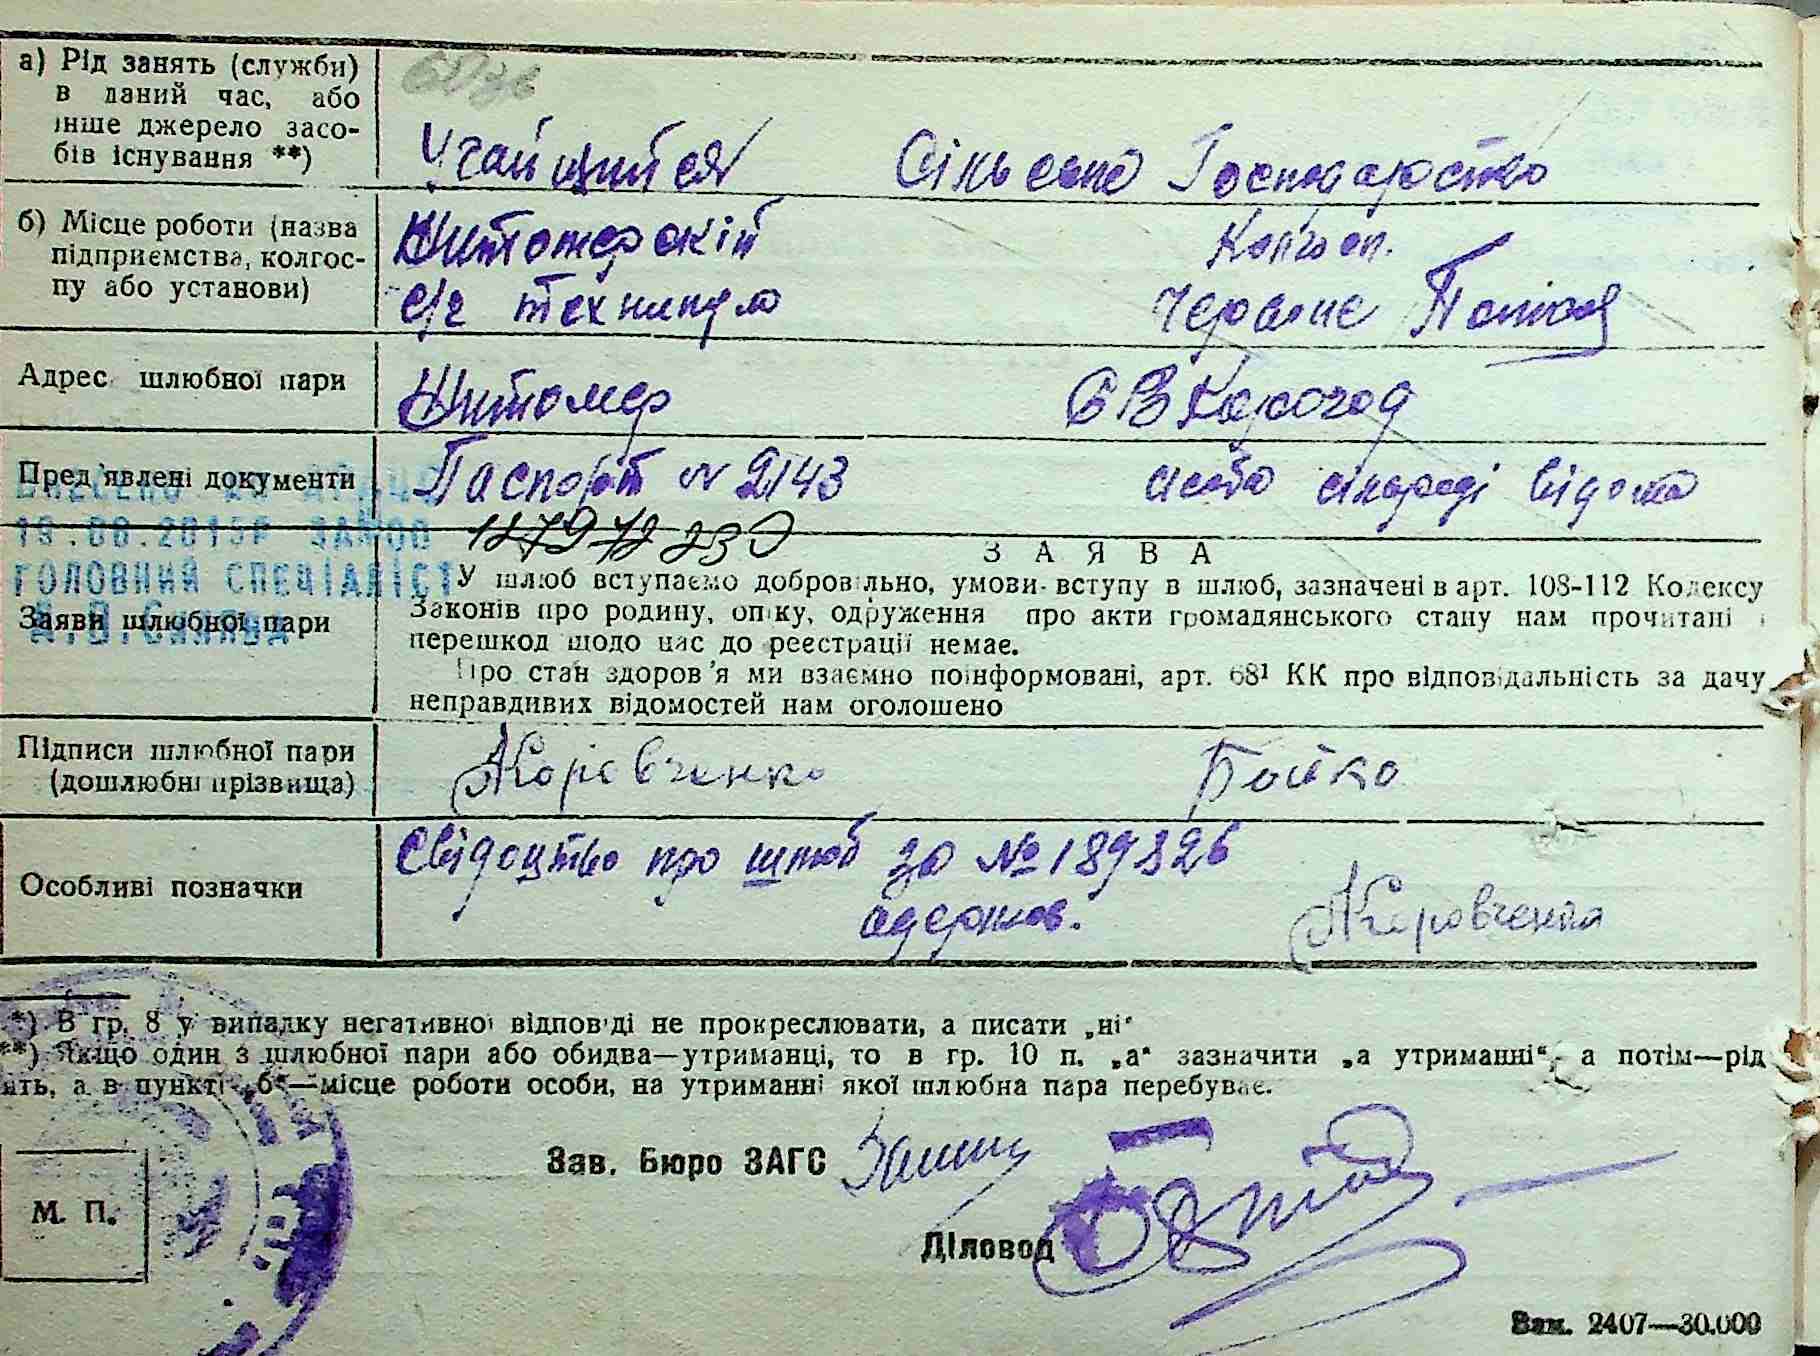 а) Рід занять (служби)
в даний час, або
інше джерело засо-
бів існування **)
Учайщийся Сільське Господарство
б) Місце роботи (назва
підприємства, колгос-
пу або установи)
Житомерский Колгосп.
с/г технікум Червоне Полісся
Адрес шлюбної пари
Житомер
Пред'явлені документи
Паспорт N 2143
1279 72 230
19.06.2015р
ГОЛОВНИЙ СПЕЦІАЛІСТ
ЗАЯВА
Заяви шлюбної пари
У шлюб вступаємо добровільно, умови вступу в шлюб, зазначені в арт. 108-112 Кодексу
Законів про родину, опіку, одруження про акти громадянського стану нам прочитані і
перешкод щодо нас до реєстрації немає.
Про стан здоров'я ми взаємно поінформовані, арт. 68¹ КК про відповідальність за дачу
неправдивих відомостей нам оголошено
Підписи шлюбної пари
(дошлюбні прізвища)
Бойко
Особливі позначки
Свідоцтво про шлюб за № 189826
одержав.
*) В гр. 8 у випадку негативної відповіді не прокреслювати, а писати „ні“
**) Якщо один з шлюбної пари або обидва—утриманці, то в гр. 10 п. „а“ зазначити „а утриманні“, а потім—рід
ять, а в пункті „б“—місце роботи особи, на утриманні якої шлюбна пара перебуває.
Зав. Бюро ЗАГС
М. П.
Діловод
Зам. 2407—30.000